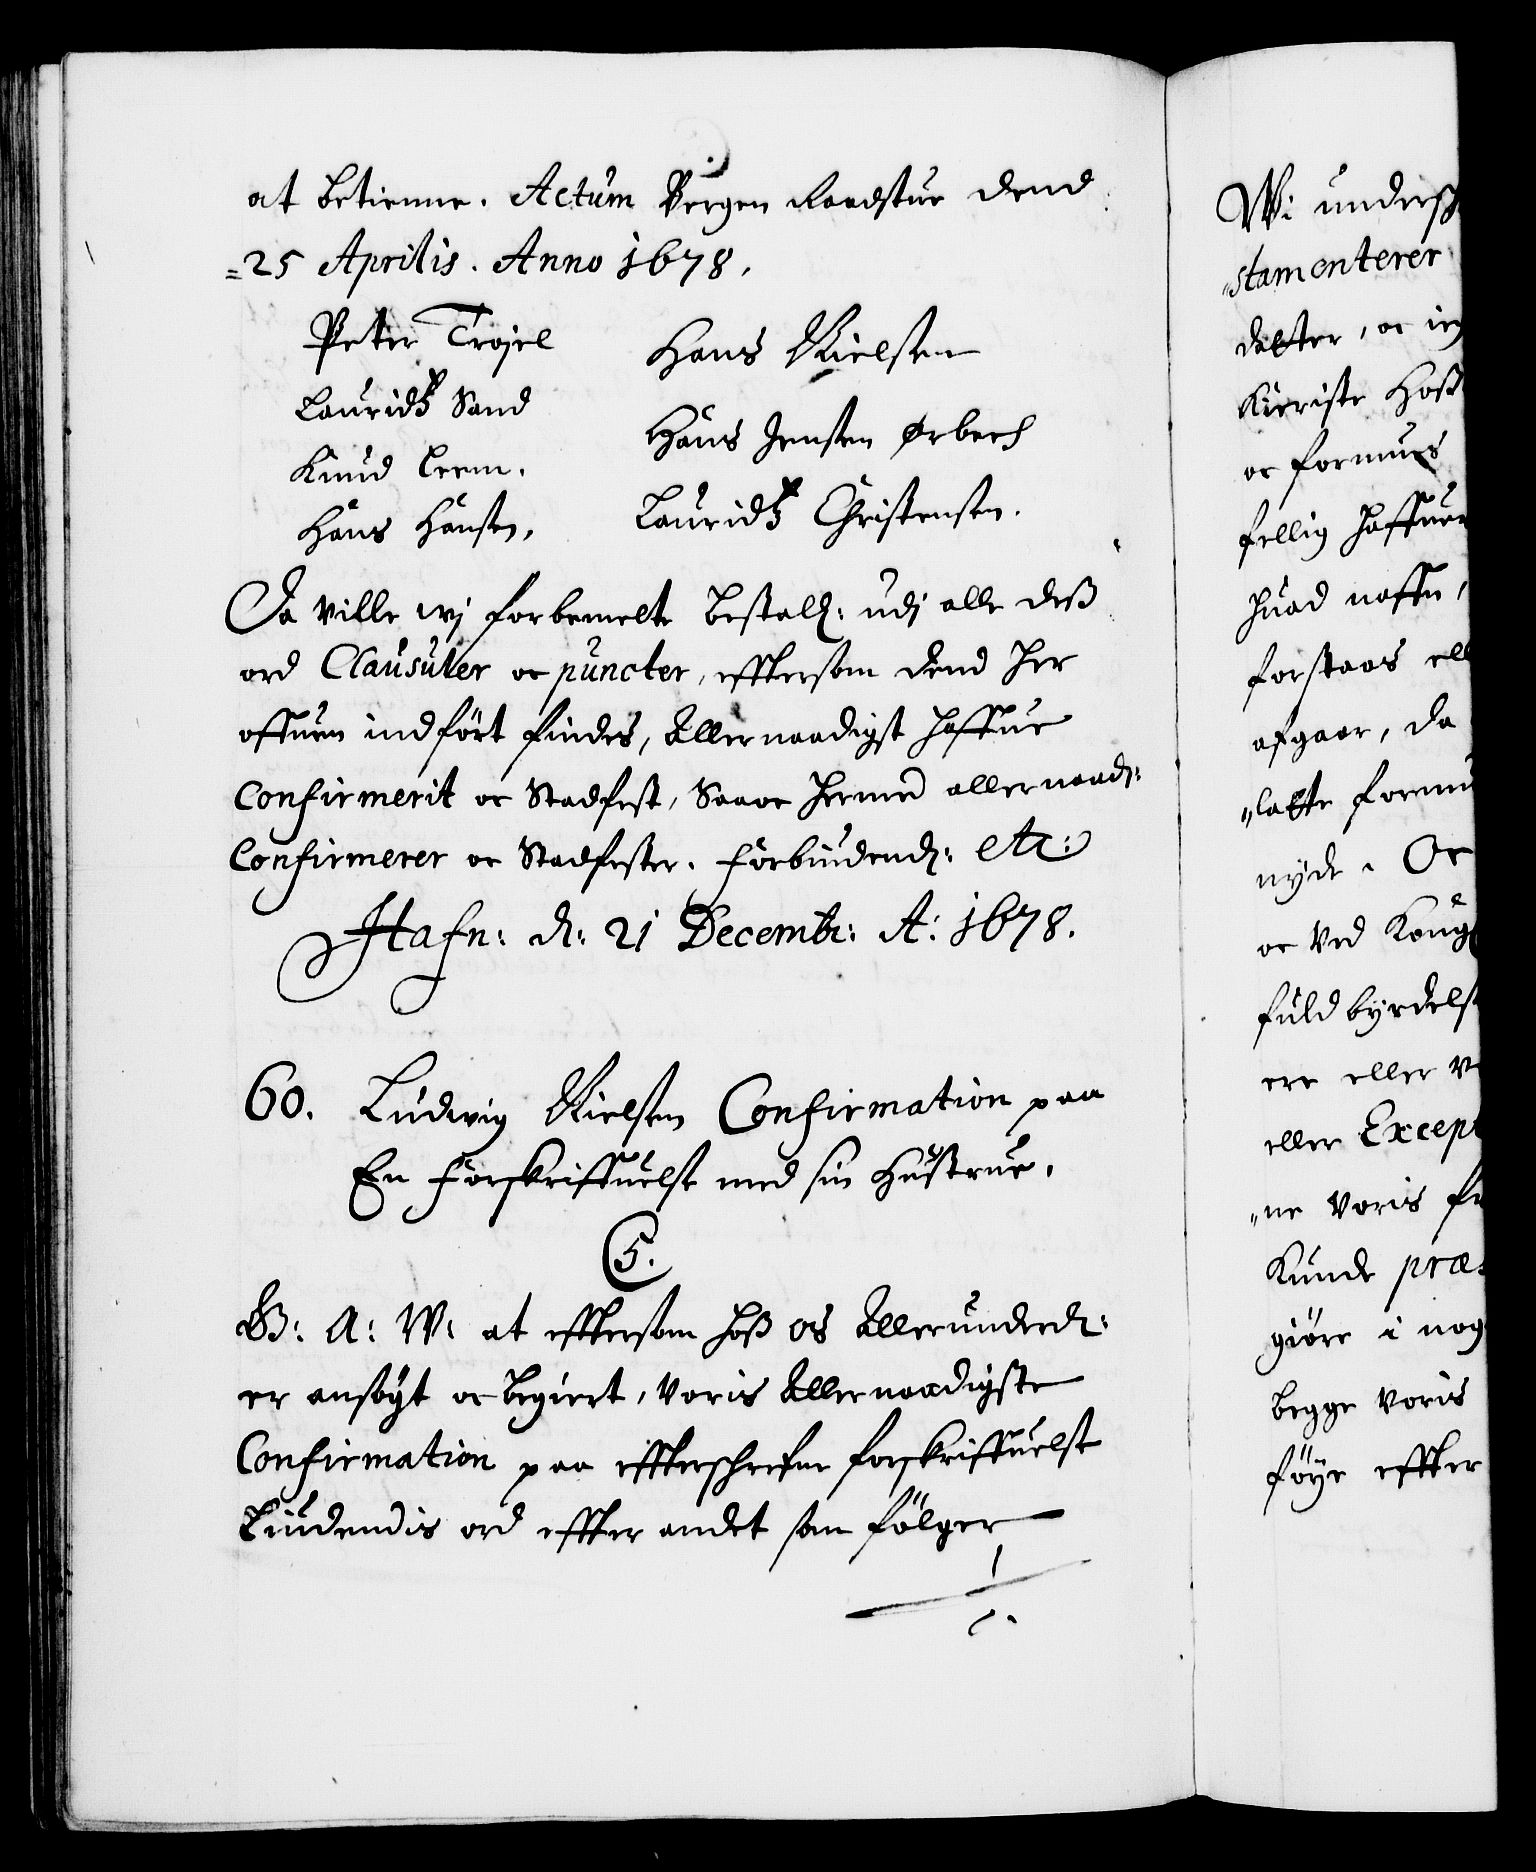 at betienne. Actum Bergen Raadstue dend
=25 Aprilis. Anno 1678.
Peter Trojel
Lauridtz Sand
Knud Leem.
Hans Hansen.
Hans Nielsen
Hans Jensen Ørbech
Lauridtz Christensen.
Da ville wj forbemelte bestall: udj alle deß
ord Clausuler oc puncter, effttersom dend her
offuen indført findes, Allernaadigst haffue
Confirmerit oc Stadfest, Saa oc hermed allernaad:
Confirmerer oc Stadfester. Forbiudend: etc:
Hafn: d: 21 Decembr: A: 1678.
60. Ludwig Nielsen Confirmation paa
En Forskriffuelse med sin Hustrue.
C5.
G: A: W: at effttersom hoß os Allerunderd:
er ansøgt oc begiert, Voris Allernaadigste
Confirmation paa efftterschrefne forskriffuelse
Liudendis ord efftter andet som følger
Wi undersch
"stamenterer
datter, oc ieg
Kieriste Hoß
oc formues
fellig haffuer
huad naffn,
forstaas ell
afgaar, da
"latte formu
nyde. Oc
oc Ved Kong
fuldbyrdelse
ere eller v
eller Except
"ne Voris fr
Kunde præ
giøre i nog
begge Voris
føye efftter